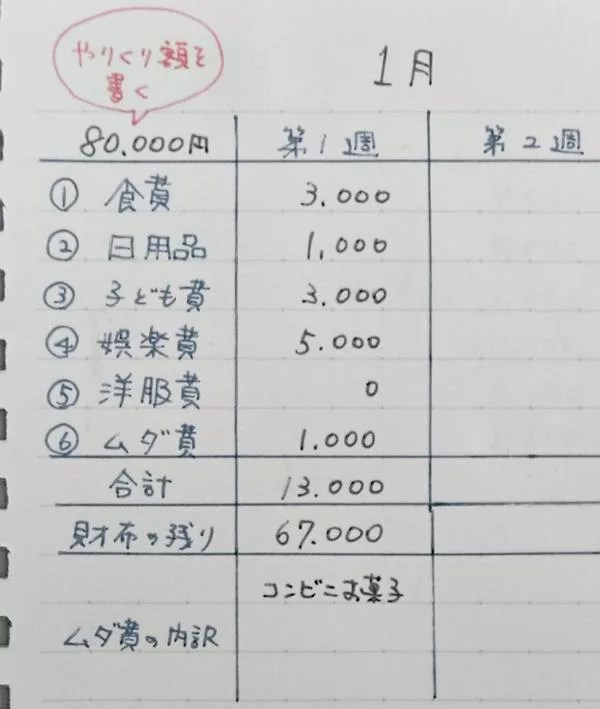 やりくり額を
書く
1月
80.000円 第1週 第2週
① 食費 3.000
② 日用品 1.000
③ 子ども費 3.000
④ 娯楽費 5.000
⑤ 洋服費 0
⑥ ムダ費 1.000
合計 13.000
財布の残り 67.000
コンビニお菓子
ムダ費の内訳